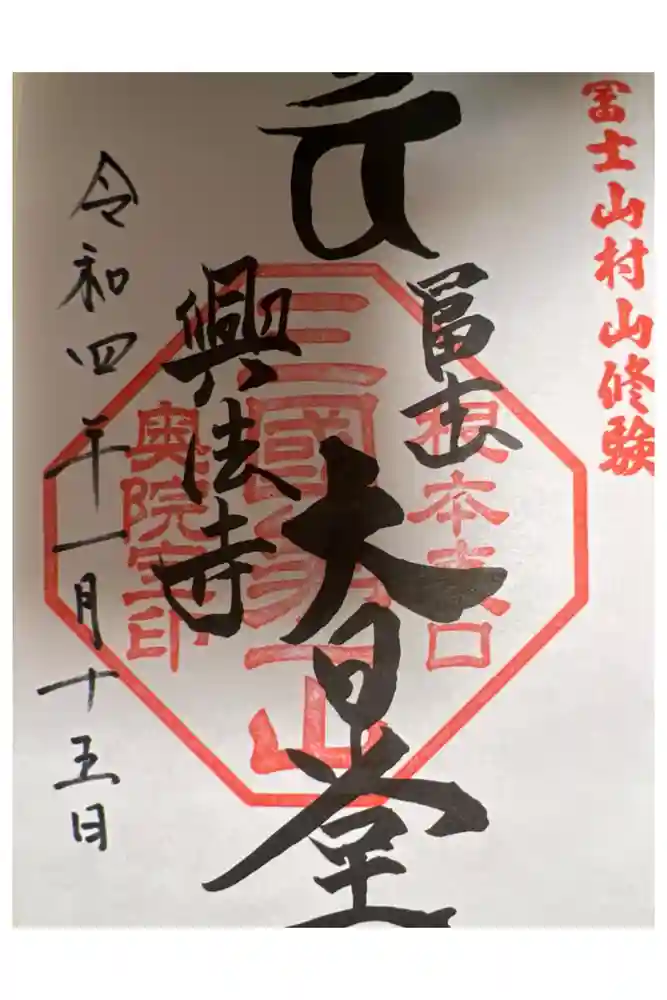 冨士山村山修験
冨士
大日堂
興法寺
令和四年一月十五日
根本表口
三國第一山
奥院宝印